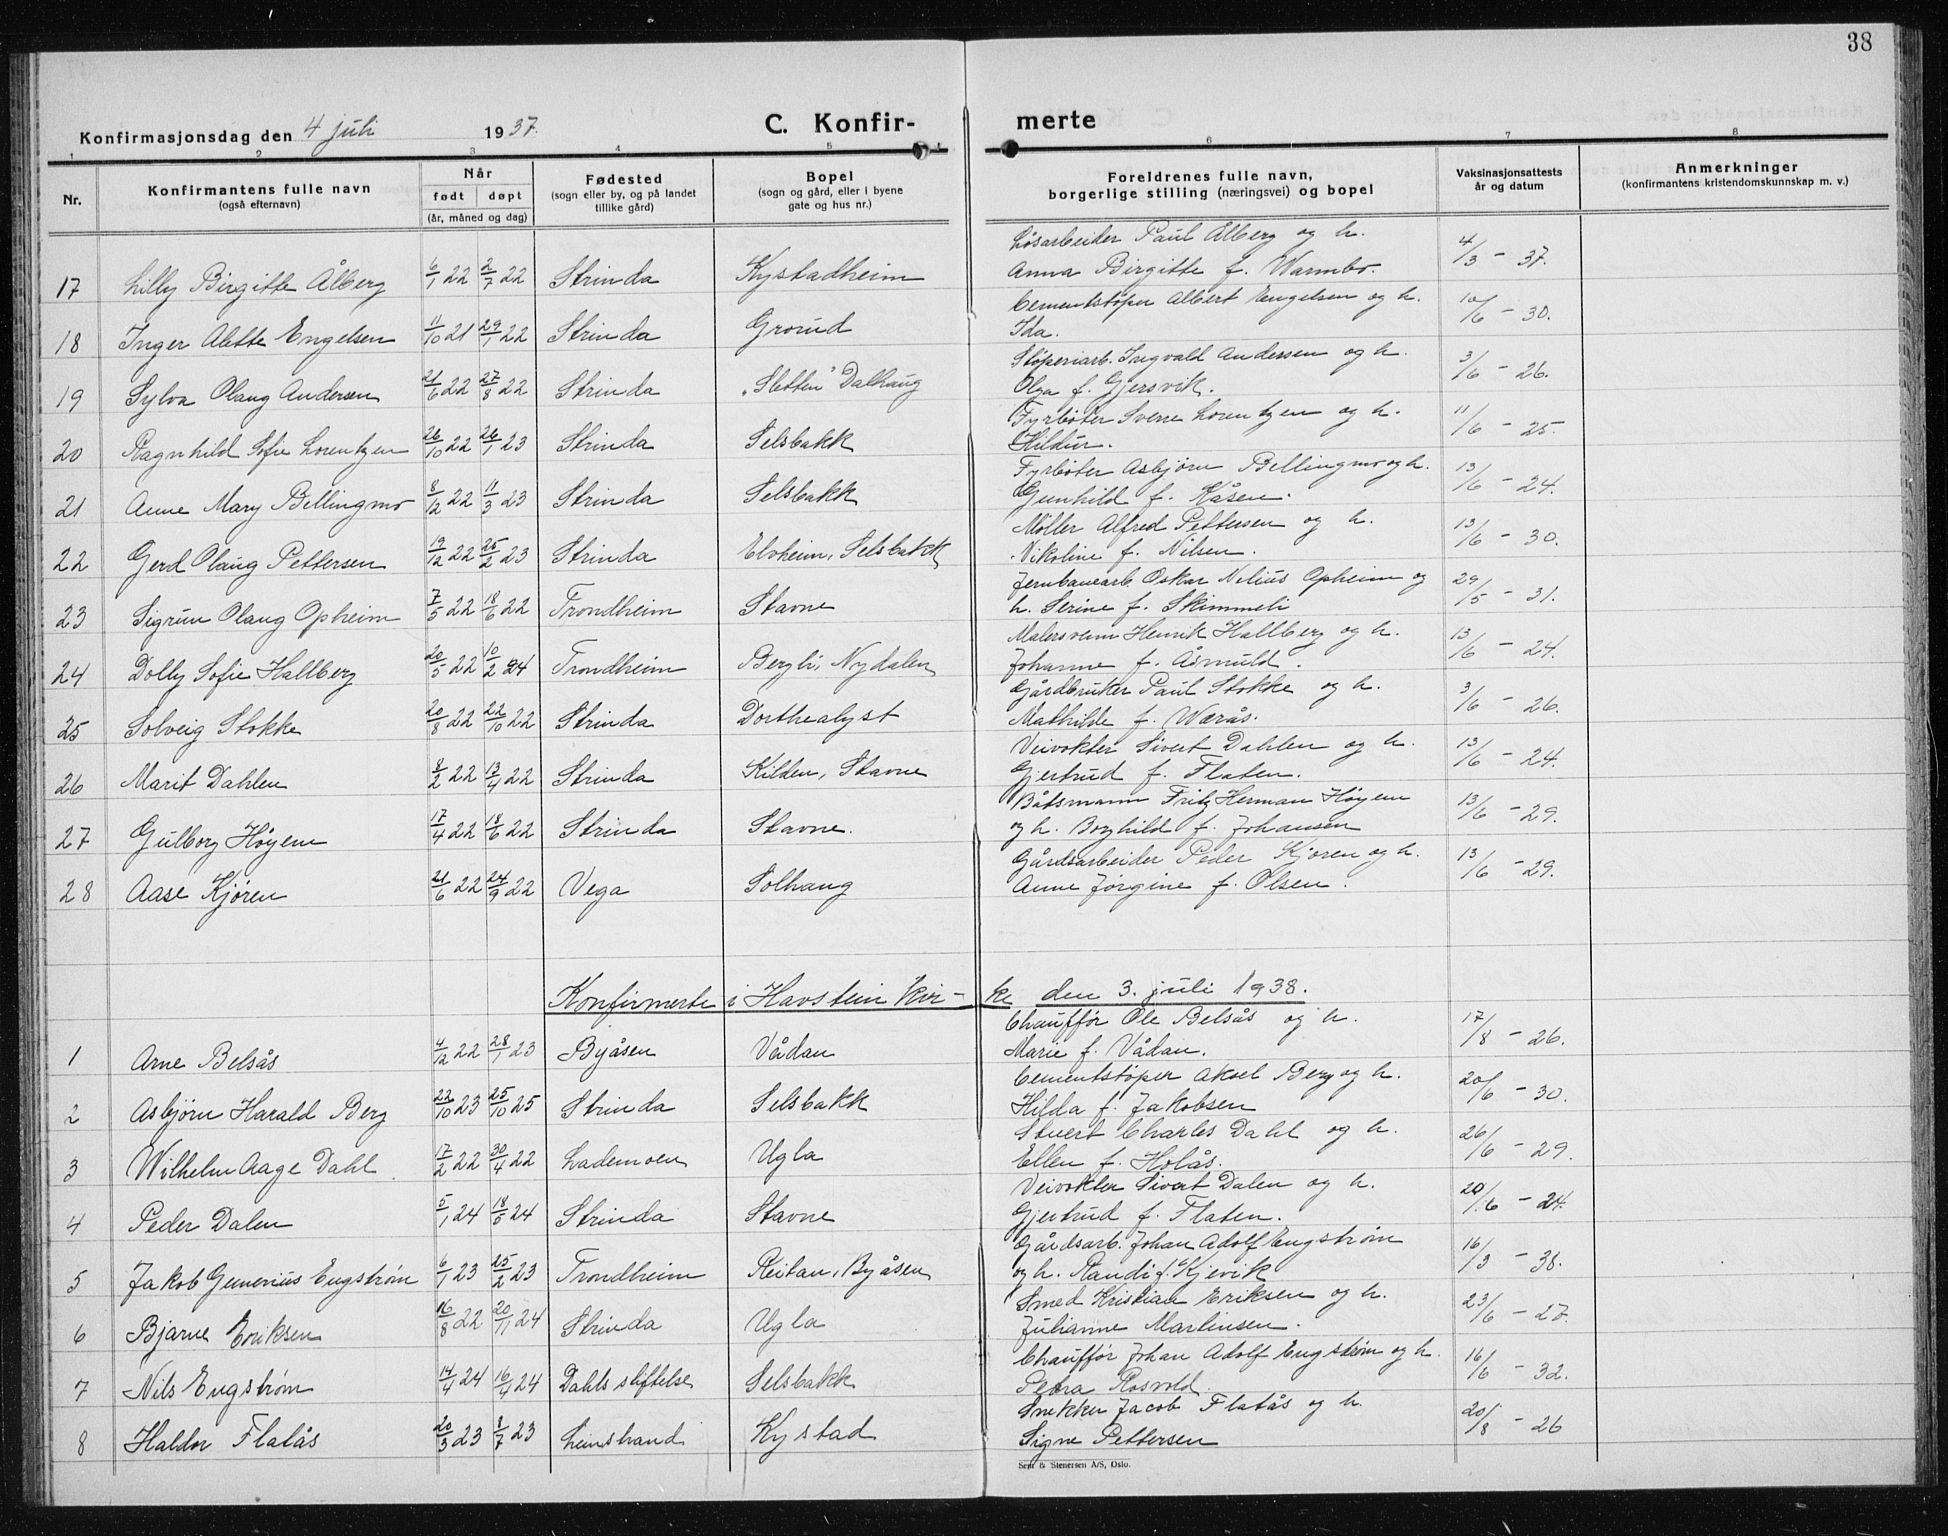 38
Konfirmasjonsdag den 4 juli 1937.
C. Konfir- merte
1 2 3 4 5 6 7 8
Nr. | Konfirmantens fulle navn (også efternavn) | Når født døpt (år, måned og dag) | Fødested (sogn eller by, og på landet tillike gård) | Bopel (sogn og gård, eller i byene gate og hus nr.) | Foreldrenes fulle navn, borgerlige stilling (næringsvei) og bopel | Vaksinasjonsattests år og datum | Anmerkninger (konfirmantens kristendomskunnskap m. v.)
17 Lilly Birgitte Ålberg 6/1 22 2/7 22 Strinda Kystadheim Løsarbeider Paul Ålberg og h. Anna Birgitte f. Warmbo. 4/3 - 37.
18 Inger Alette Engelsen 11/10 21 29/1 22 Strinda Groud Cementstøper Albert Engelsen og h. Ida. 10/6 - 30.
19 Sylva Olaug Andersen 21/6 22 27/8 22 Strinda "Sletten" Dalhaug Støperiarb. Ingvald Andersen og h. Olga f. Gjersvik. 3/6 - 26.
20 Ragnhild Sofie Lorentzen 26/10 22 26/1 23 Strinda Selsbakk Fyrbøter Sverre Lorentzen og h. Hildur. 11/6 - 25.
21 Anne Mary Bellingmo 8/12 22 11/3 23 Strinda Selsbakk Fyrbøter Asbjørn Bellingmo og h. Gunhild f. Kåsen. 13/6 - 24.
22 Gerd Olaug Pettersen 19/12 22 25/2 23 Strinda Elvheim, Selsbakk Møller Alfred Pettersen og h. Nikoline f. Nilsen. 13/6 - 30.
23 Sigrun Olaug Opheim 7/5 22 18/6 22 Trondheim Stavne Jernbanearb. Oskar Nilius Opheim og h. Serine f. Skimmeli 29/5 - 31.
24 Dolly Sofie Hallberg 20/5 22 10/2 24 Trondheim Bergli, Nydalen Malersvenn Henrik Hallberg og h. Johanne f. Åsmuld. 13/6 - 24.
25 Solveig Stokke 20/8 22 22/10 22 Strinda Dorthealyst Gårdbruker Paul Stokke og h. Mathilde f. Wærås. 3/6 - 26.
26 Marit Dahlen 8/2 22 17/4 22 Strinda Kilden, Stavne Veivokter Sivert Dahlen og h. Gjertrud f. Flaten. 13/6 - 24.
27 Gulborg Høyem 17/4 22 18/6 22 Strinda Stavne. Båtsmann Fritz Herman Høyem og h. Borghild f. Johansen 13/6 - 29.
28 Aase Kjøren 21/6 22 24/9 22 Vega Solhaug Gårdsarbeider Peder Kjøren og h. Anne Jørgine f. Olsen. 13/6 - 29.
Konfirmerte i Havstein kir- ke den 3. juli 1938.
1 Arne Belsås 4/12 22 28/1 23 Byåsen Vådan Chauffør Ole Belsås og h. Marie f. Vådan. 17/8 - 26.
2 Asbjørn Harald Berg 22/10 23 25/10 25 Strinda Selsbakk Cementstøper Aksel Berg og h. Hilda f. Jakobsen 20/6 - 30.
3 Wilhelm Aage Dahl 17/2 22 30/4 22 Lademoen Ugla Stuert Charles Dahl og h. Ellen f. Holås. 26/6 - 29.
4 Peder Dalen 5/1 24 18/5 24 Strinda Stavne Veivokter Sivert Dalen og h. Gjertrud f. Flaten. 20/6 - 24.
5 Jakob Engstrøm 6/1 23 25/2 23 Trondheim Reitan, Byåsen Gårdsarb. Johan Adolf Engstrøm og h. Randi f. Kjevik 16/3 - 38.
6 Bjarne Eriksen 16/8 22 20/11 24 Strinda Ugla Smed Kristian Eriksen og h. Julianne Martinsen. 23/6 - 27.
7 Nils Engstrøm 14/4 24 16/4 24 Dahls stiftelse Selsbakk Chauffør Johan Adolf Engstrøm og h. Petra Rosvold. 16/6 - 32.
8 Haldor Flatås 20/3 23 8/7 23 Leinstrand Kystad Snekker Jacob Flatås og h. Signe Pettersen 20/8 - 26
Sem & Stenersen A/S, Oslo.